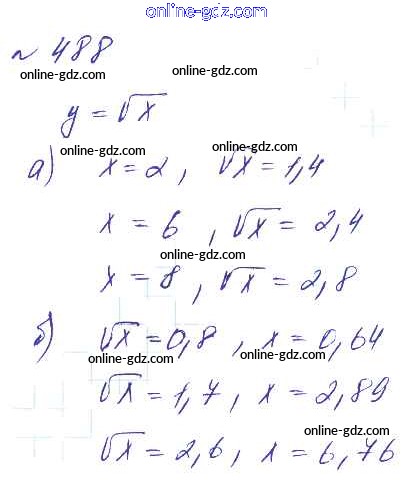 online-gdz.com
№ 488
online-gdz.com online-gdz.com
y = √x
а) x = 2, √x = 1,4
online-gdz.com online-gdz.com
x = 6, √x = 2,4
online-gdz.com
x = 8, √x = 2,8
online-gdz.com
б) √x = 0,8, x = 0,64
online-gdz.com online-gdz.com
√x = 1,7, x = 2,89
online-gdz.com
√x = 2,6, x = 6,76
online-gdz.com